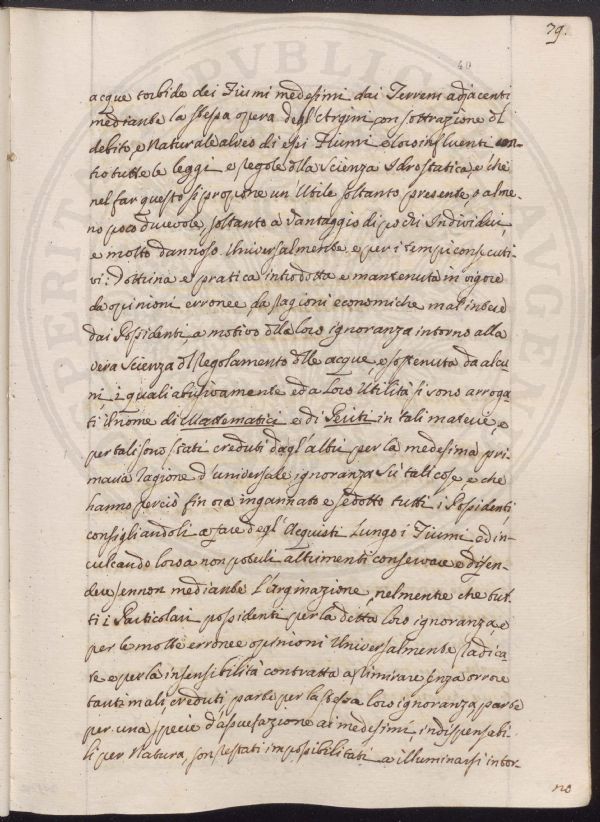 39.
40
acque torbide dei Fiumi medesimi dai Terreni adjacenti
mediante la stessa opera degl'Argini con sottrazione dl
debito, e Naturale alveo di essi Fiumi e loro influenti con-
tro tutte le leggi e regole dlla Scienza Idrostatica, e che
nel far questo si propone un Utile soltanto presente o alme-
no poco durevole, soltanto a vantaggio di pochi Individui
e molto dannoso Universalmente e per i tempi consecuti-
vi: Dottrina e pratica introdotta e mantenuta in vigore
da opinioni erronee, da ragioni economiche mal intese
dai Possidenti a motivo dlla loro ignoranza intorno alla
vera Scienza dl Regolamento dlle acque, e sostenuta da alcu
ni i quali abusivamente ed a loro Utilità si sono arroga
ti il nome di Mattematici e di Periti in tali materie, e
per tali sono stati creduti dagl'altri per la medesima pri
maria ragione d'universale ignoranza su tali cose, e che
hanno perciò fin ora ingannato e sedotto tutti i Possidenti
consigliandoli a fare degl'Acquisti lungo i Fiumi ed in-
culcando loro a non poterli altrimenti conservare e difen-
dere sennon mediante l'arginazione, nelmentre che tut-
ti i Particolari possidenti per la detta loro ignoranza, e
per le molte erronee opinioni Universalmente radica-
te e per la insensibilità contratta a rimirare senza orrore
tanti mali creduti parte per la stessa loro ignoranza parte
per una specie d'assuefazione ai medesimi, indispensabi-
li per Natura, son restati impossibilitati a illuminarsi intor-
no